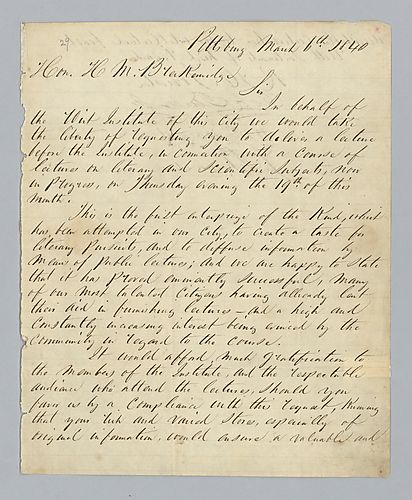 29
Pittsburg March 6th 1840
Hon. H M. Brackenridge
Sir
In behalf of
the Wirt Institute of this City we would take
the liberty of requesting you to deliver a lecture
before the Institute, in connection with a course of
lectures on literary and Scientific Subjects, now
in progress, on Thursday evening the 19th of this
month.
This is the first enterprize of the Kind, which
has been attempted in our City, to create a taste for
literary pursuits, and to diffuse information by
means of public lectures; and we are happy to state
that it has proved eminently successful, many
of our most talented citizens having already lent
their aid in furnishing lectures – and a high and
constantly increasing interest being evinced by the
Community in regard to the course.
It would afford much gratification to
the members of the Institute, and the respectable
audience who attend the lectures, should you
favor us by a compliance with this request, Knowing
that your rich and varied stores, especially of
original information, would ensure a valuable and